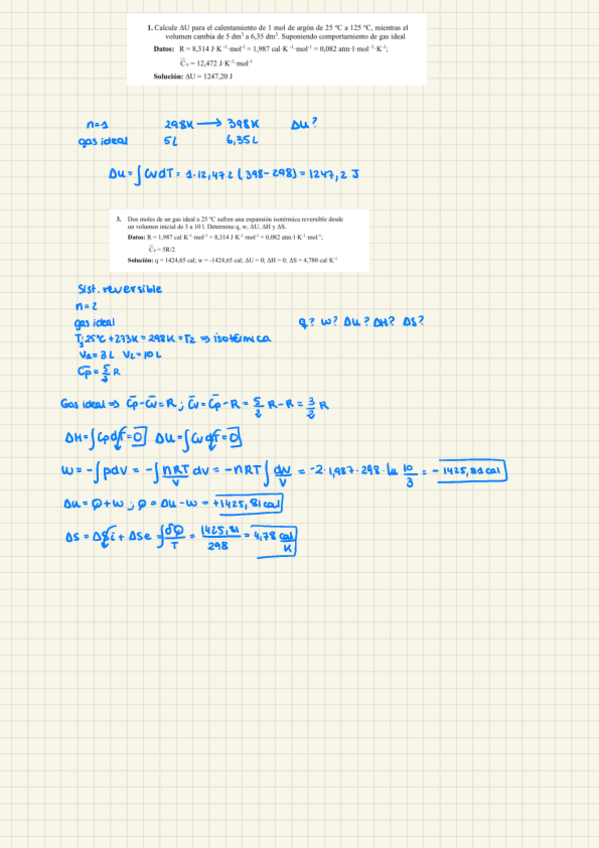 1. Calcule ΔU para el calentamiento de 1 mol de argón de 25 ºC a 125 ºC, mientras el
volumen cambia de 5 dm³ a 6,35 dm³. Suponiendo comportamiento de gas ideal
Datos: R = 8,314 J·K⁻¹·mol⁻¹ = 1,987 cal·K⁻¹·mol⁻¹ = 0,082 atm·l·mol⁻¹·K⁻¹;
C̄v = 12,472 J·K⁻¹·mol⁻¹
Solución: ΔU = 1247,20 J
n=1 298K ⟶ 398K ΔU?
gas ideal 5L 6,35L
ΔU = ∫ CvdT = 1·12,472 (398-298) = 1247,2 J
3. Dos moles de un gas ideal a 25 ºC sufren una expansión isotérmica reversible desde
un volumen inicial de 3 a 10 l. Determine q, w, ΔU, ΔH y ΔS.
Datos: R = 1,987 cal·K⁻¹·mol⁻¹ = 8,314 J·K⁻¹·mol⁻¹ = 0,082 atm·l·K⁻¹·mol⁻¹;
= 5R/2
Solución: q = 1424,65 cal; w = -1424,65 cal; ΔU = 0; ΔH = 0; ΔS = 4,780 cal·K⁻¹
Sist. reversible
n=2
gas ideal q? w? ΔU? ΔH? ΔS?
25ºC +273K = 298K = T2 ⇒ isotérmica
3L 10L
C̄p = R
Gas ideal ⇒ C̄p - C̄v = R ; C̄v = C̄p - R = 5/2 R - R = 3/2 R
ΔH = ∫ CpdT = 0 ΔU = ∫ CvdT = 0
W = -∫ pdV = -∫ nRT/V dV = -nRT ∫ dV/V = -2·1,987·298·ln 10/3 = -1425,81 cal
ΔU = Q + W ; Q = ΔU - W = +1425,81 cal
ΔS = ΔSi + ΔSe = ∫ δQ/T = 1425,81/298 = 4,78 cal/K